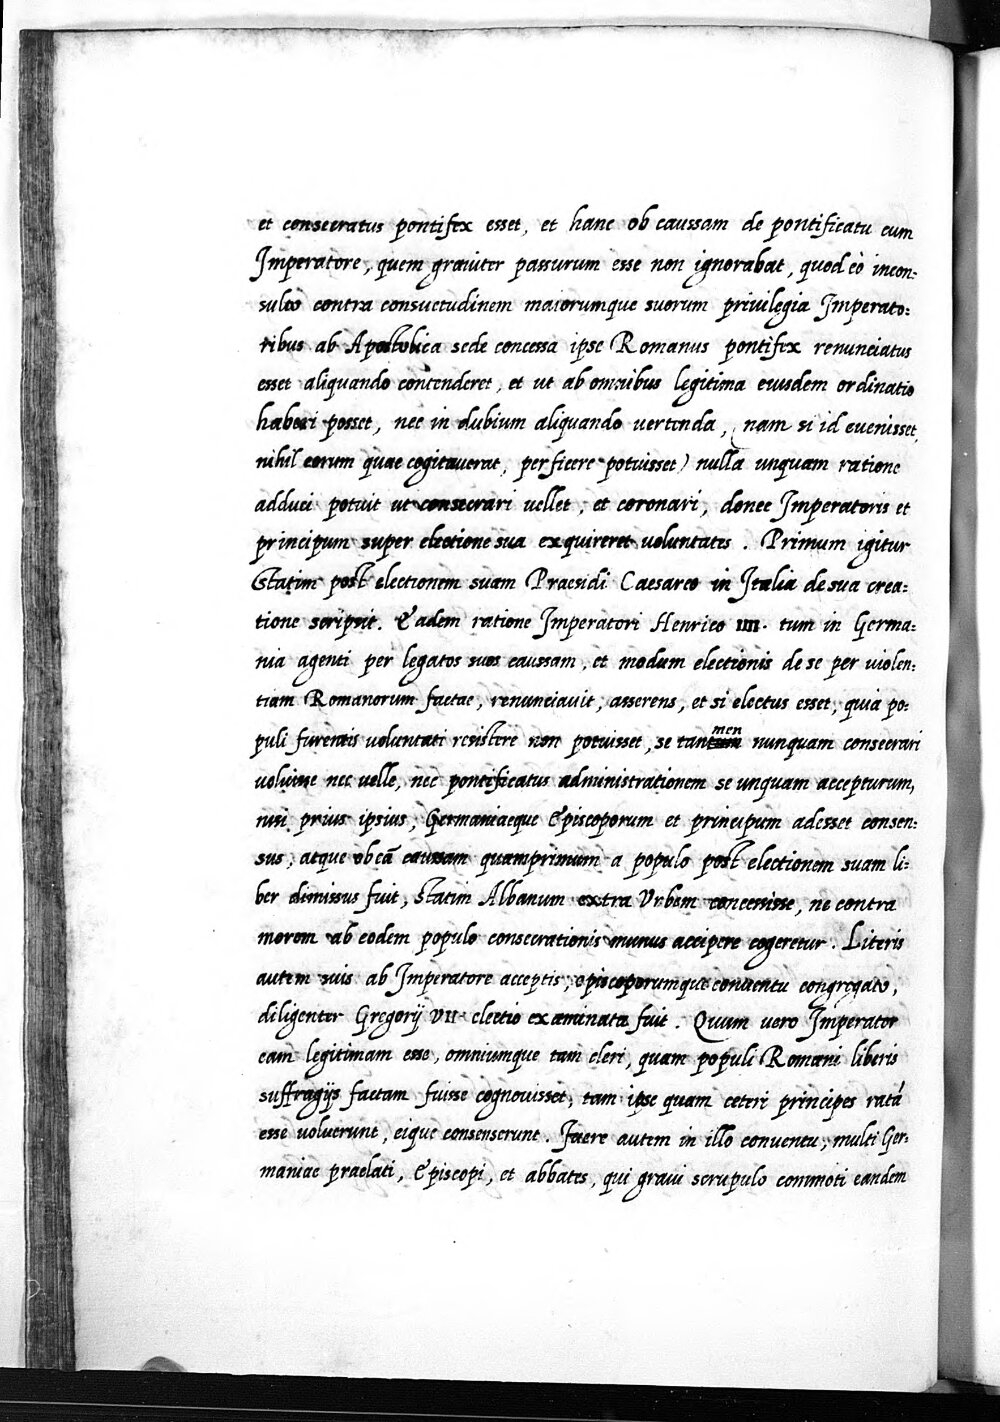 et consecratus pontifex esset, et hanc ob caussam de pontificatu cum
Imperatore, quem grauiter passurum esse non ignorabat, quod eò incon:
sulto contra consuetudinem maiorumque suorum priuilegia Imperato:
ribus ab Apostolica sede concessa ipse Romanus pontifex renunciatus
esset aliquando contenderet, et ut ab omnibus legitima eiusdem ordinatio
haberi posset, nec in dubium aliquando uertenda, (nam si id euenisset,
nihil eorum quae cogitauerat, perficere potuisset) nulla unquam ratione
adduci potuit ut consecrari uellet, et coronari, donec Imperatoris et
principum super electione sua exquireret uoluntates. Primum igitur
Statim post electionem suam Praesidi Caesareo in Italia de sua crea:
tione scripsit. Eadem ratione Imperatori Henrico IIII. tum in Germa:
nia agenti per legatos suos caussam, et modum electionis de se per uiolen:
tiam Romanorum factae, renunciauit, asserens, et si electus esset, quia po:
puli furentis uoluntati resistere non potuisset, se tamen nunquam consecrari
uoluisse nec uelle, nec pontificatus administrationem se unquam accepturum,
nisi prius ipsius, Germaniaeque Episcoporum et principum adesset consen:
sus, atque ob eā caussam quamprimum a populo post electionem suam li:
ber dimissus fuit, statim Albanum extra Vrbem concessisse, ne contra
morem ab eodem populo consecrationis munus accipere cogeretur. Literis
autem suis ab Imperatore acceptis, episcoporumque conuentu congregato,
diligenter Gregorij VII. electio examinata fuit. Quum uero Imperator
eam legitimam esse, omniumque tam cleri, quam populi Romani liberis
suffragijs factam fuisse cognouisset, tam ipse quam ceteri principes ratā
esse uoluerunt, eique consenserunt. Fuere autem in illo conuentu, multi Ger:
maniae praelati, Episcopi, et abbates, qui graui scrupulo commoti eandem